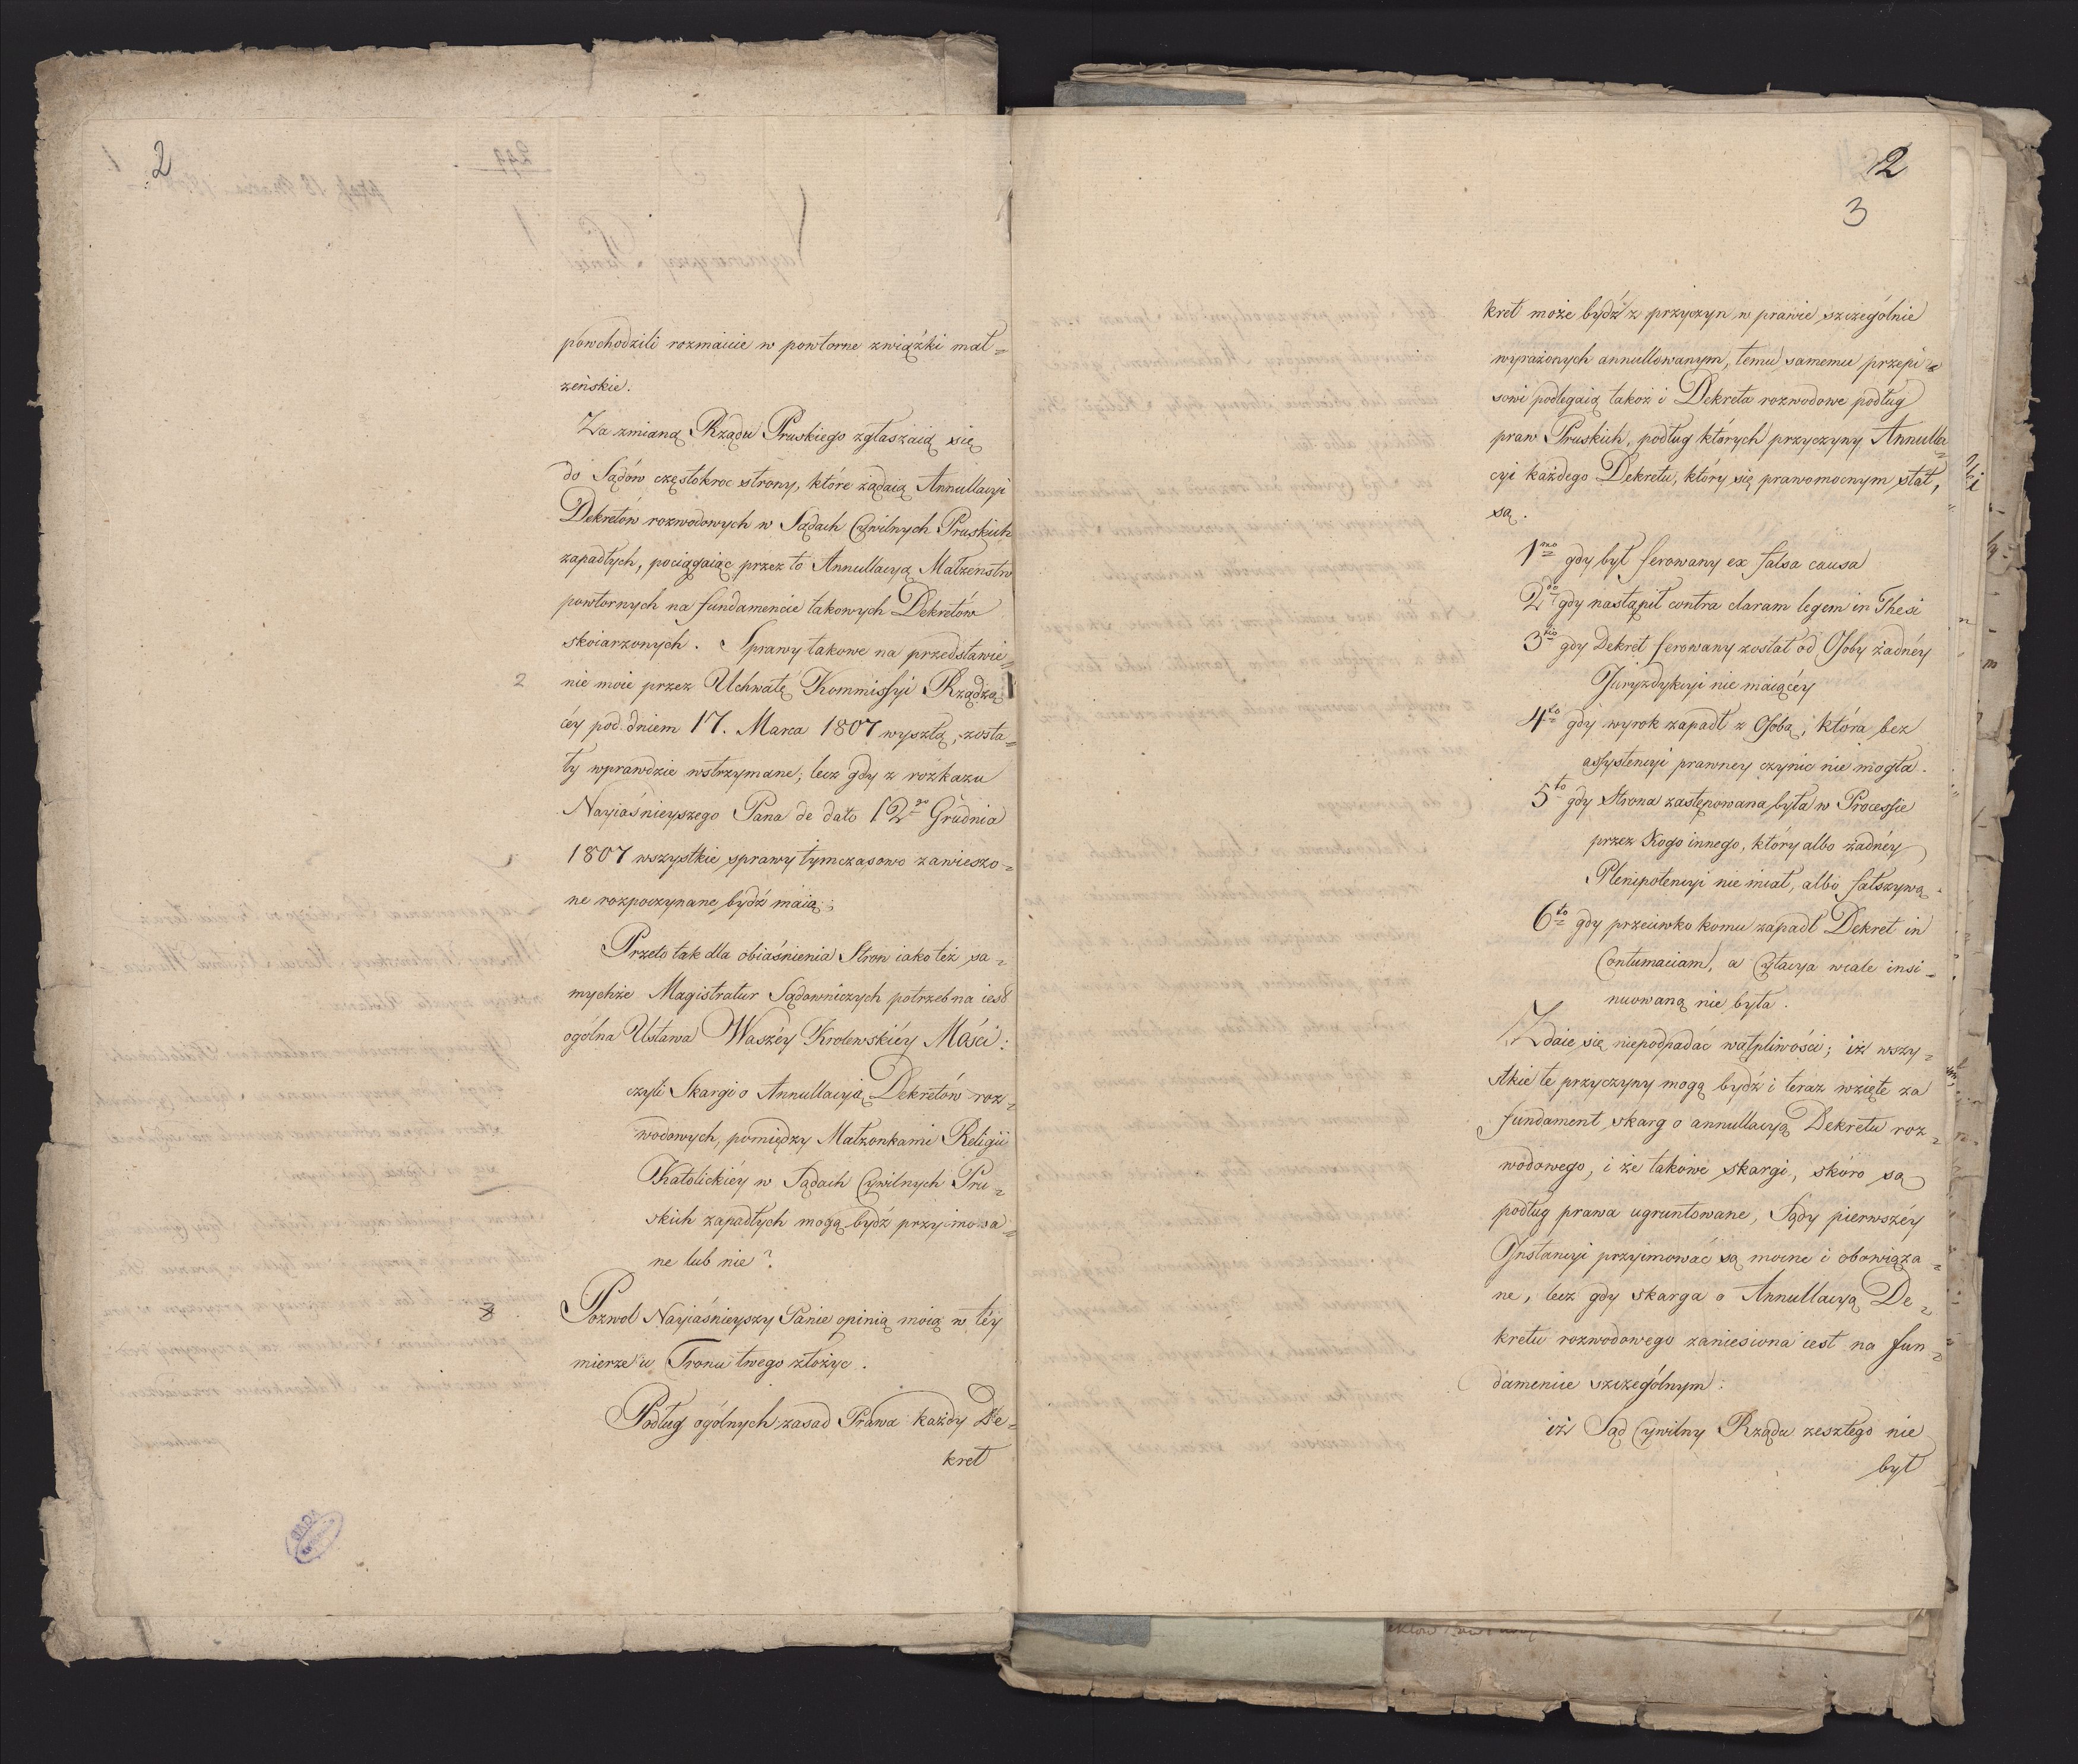 2
powchodzili rozmaicie w powtorne związki mał=
żeńskie.
Za zmianą Rządu Pruskiego zgłaszaią się
do Sądów częstokroc strony, które żądaią Annullacyi
Dekretów rozwodowych w Sądach Cywilnych Pruskich
zapadłych, pociągaiąc przez to Annullacyą Małżenstw
powtornych na fundamencie takowych Dekretów
skoiarzonych. Sprawy takowe na przedstawie=
2 nie moie przez Uchwałę Kommissyi Rządzą
céy pod dniem 17. Marca 1807 wyszłą, zosta=
ły wprawdzie wstrzymane, lecz gdy z rozkazu
Nayiaśnieyszego Pana de dato 12go Grudnia
1807 wszystkie sprawy tymczasowo zawieszo=
ne rozpoczynane bydź maią;
Przeto tak dla obiaśnienia Stron iako też sa=
mychże Magistratur Sądowniczych potrzebna iest
ogólna Ustawa Waszéy Krolewskiéy Mości:
czyli Skargi o Annullacyią Dekretów roz=
wodowych, pomiędzy Małżonkami Religii
Katolickiéy w Sądach Cywilnych Pru=
skich zapadłych mogą bydź przyimowa=
ne lub nie?
3 Pozwol Nayiaśnieyszy Panie opinią moią w téy
mierze u Tronu twego złożyc.
Podług ogólnych zasad Prawa każdy De=
kret
2
3
kret może bydź z przyczyn w prawie szczególnie
wyrażonych annullowanym, temu samemu przepi=
sowi podlegaią takoż i Dekreta rozwodowe podług
praw Pruskich, podług których przyczyny Annulla
cyi każdego Dekretu, który się prawomocnym stał,
są.
1mo gdy był ferowany ex falsa causa
2do gdy nastąpił contra claram legem in Thesi
3tio gdy Dekret ferowany został od Osoby żadnéy
Juryzdykcyi nie maiącéy
4to gdy wyrok zapadł z Osobą, która bez
assystencyi prawney czynic nie mogła.
5to gdy Strona zastępowana była w Processie
przez Kogo innego, który albo żadnéy
Plenipotencyi nie miał, albo fałszywą.
6to gdy przeciwko komu zapadł Dekret in
Contumaciam, a Cytacya wcale insi=
nuowaną nie była.
Zdaie się niepodpadać wątpliwości; iż wszy=
stkie te przyczyny mogą bydź i teraz wzięte za
fundament skarg o annullacyą Dekretu roz=
wodowego, i że takowe skargi, skoro są
podług prawa ugruntowane, Sądy pierwszéy
Instancyi przyimować są mocne i obowiąza=
ne, lecz gdy skarga o Annullacyą De=
kretu rozwodowego zaniesiona iest na fun=
damencie szczególnym:
iż Sąd Cywilny Rządu zeszłego nie
był